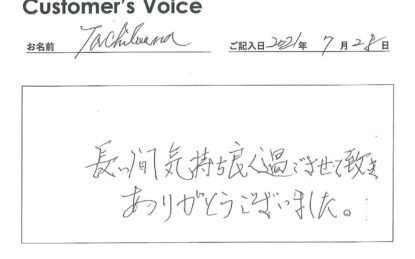 Customer's Voice
お名前 Tachibana ご記入日 2021年 7月28日
長い間気持ち良く過ごさせて致き
ありがとうございました。